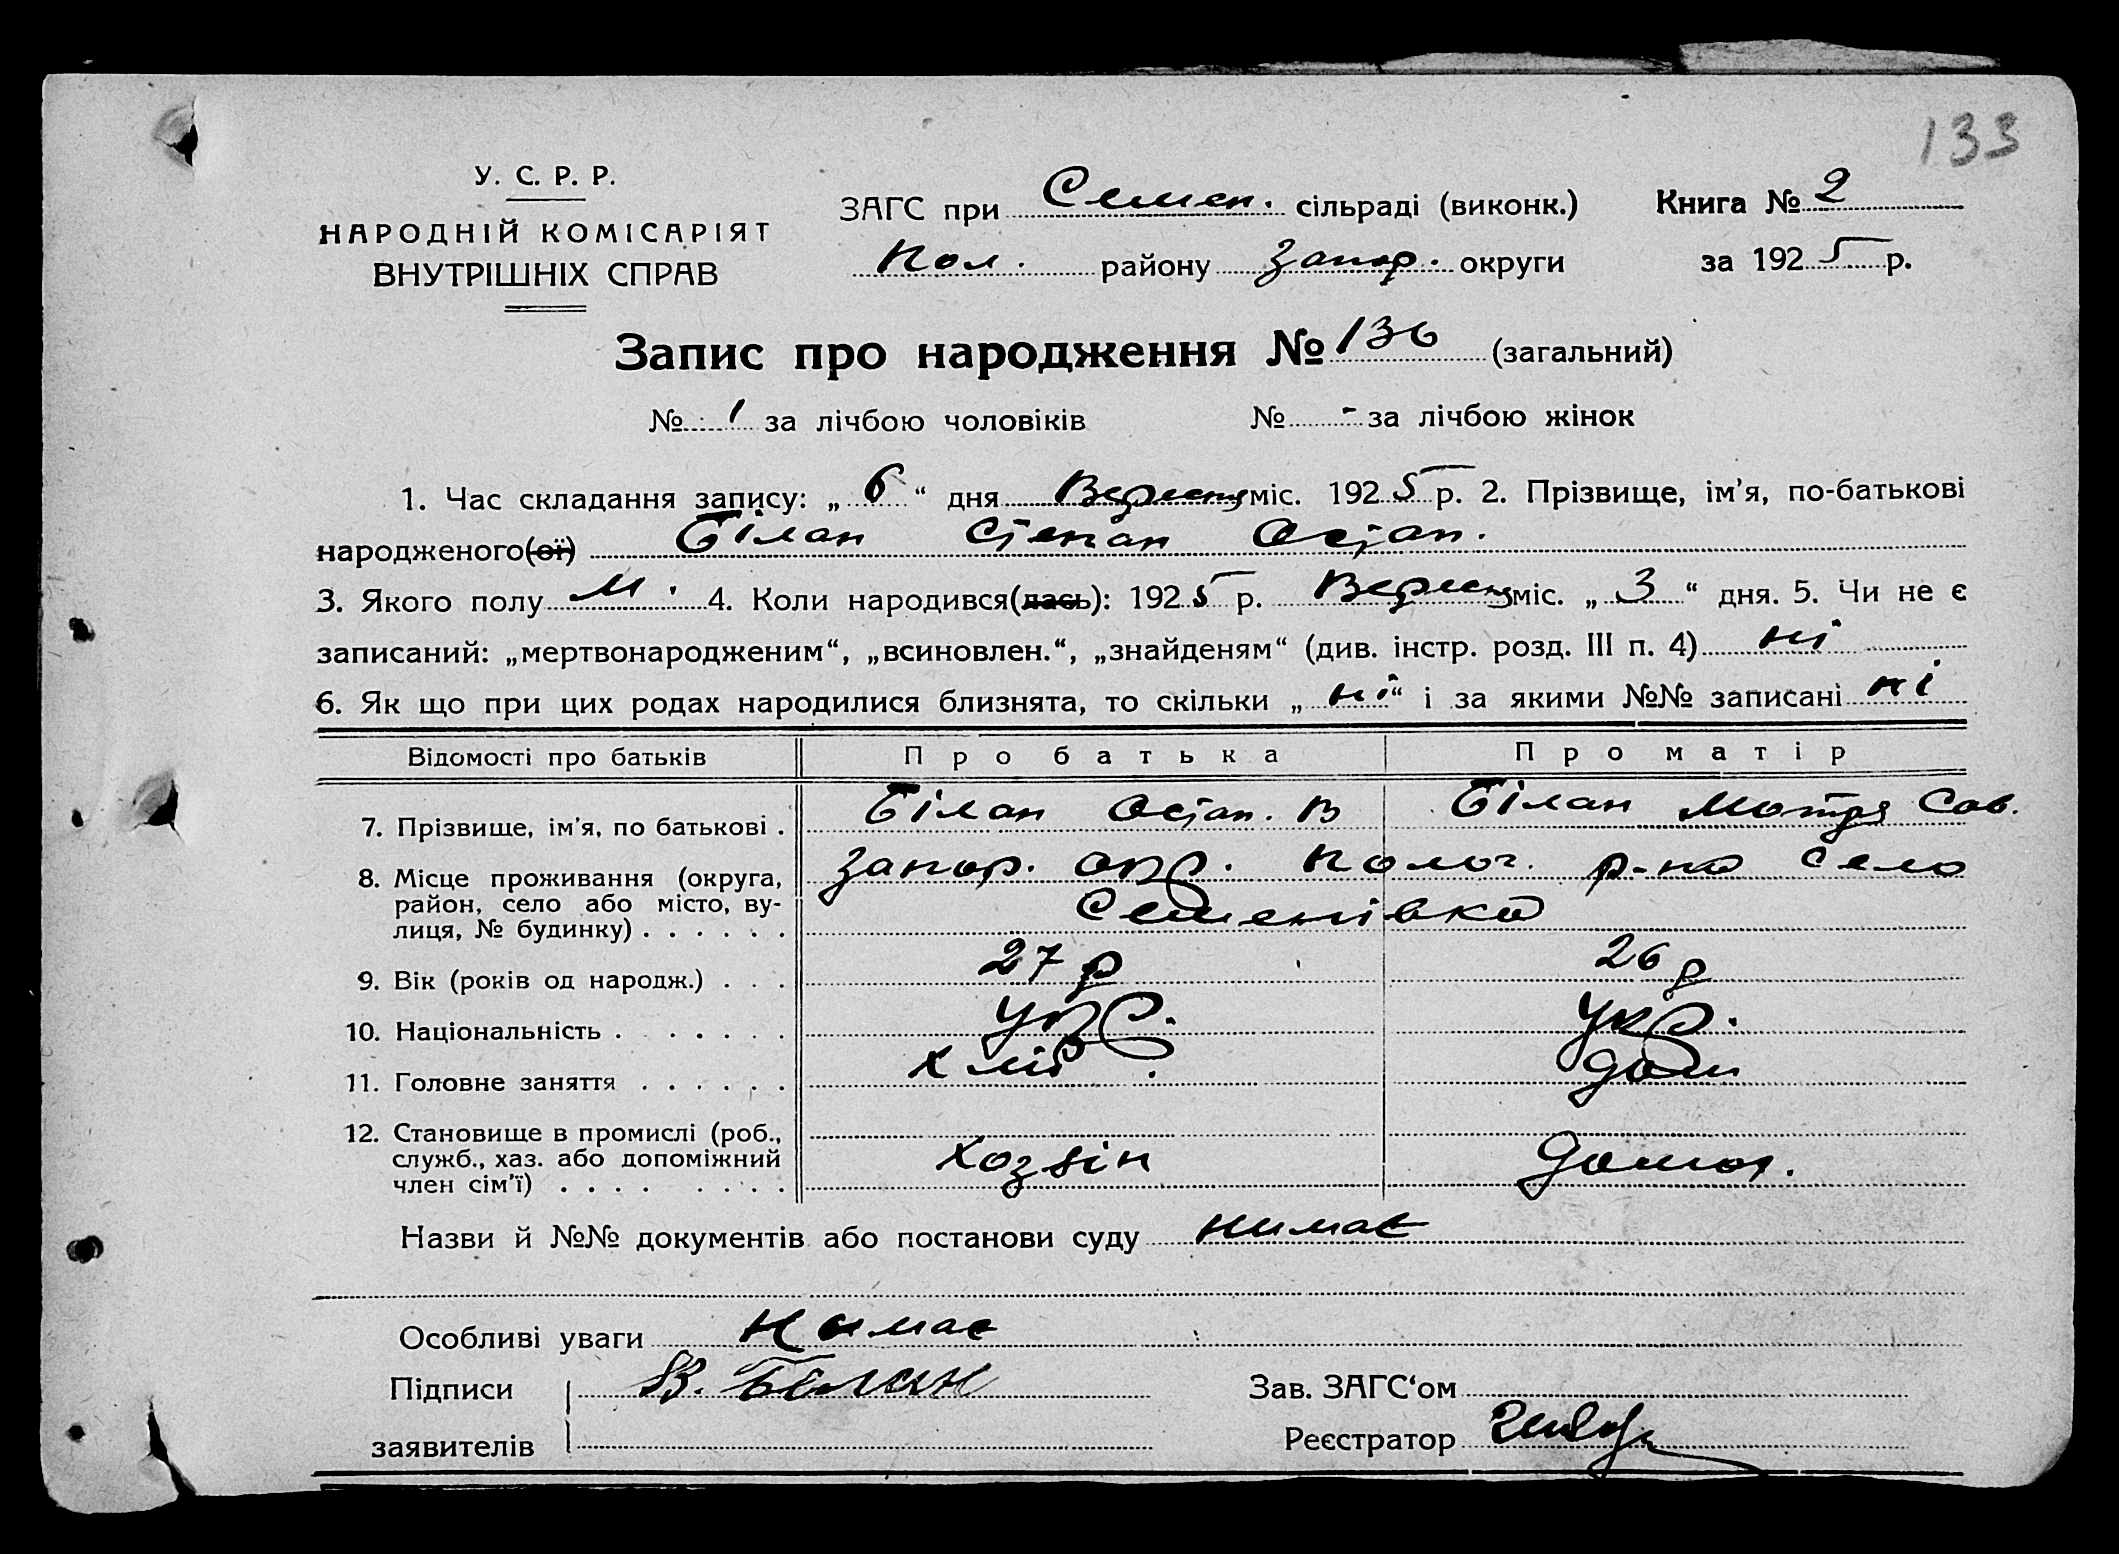 133
У. С. Р. Р.
НАРОДНІЙ КОМІСАРІЯТ
ВНУТРІШНІХ СПРАВ
ЗАГС при Семен. сільраді (виконк.) Книга № 2
Пол. району Запор. округи за 1925 р.
Запис про народження № 136 (загальний)
№ 1 за лічбою чоловіків № - за лічбою жінок
1. Час складання запису: „ 6 “ дня Вересня міс. 1925 р. 2. Прізвище, ім'я, по-батькові
народженого(ої) Білан Степан Остап.
3. Якого полу М. 4. Коли народився(лась): 1925 р. Вересня міс. „ 3 “ дня. 5. Чи не є
записаний: „мертвонародженим“, „всиновлен.“, „знайденям“ (див. інстр. розд. III п. 4) ні
6. Як що при цих родах народилися близнята, то скільки „ ні “ і за якими №№ записані ні
Відомості про батьків Про батька Про матір
7. Прізвище, ім'я, по батькові . Білан Остап. В Білан Мотря Сав.
8. Місце проживання (округа, район, село або місто, вулиця, № будинку) . . . . . . Запор. окр. Полог. р-на село
Семенівка
9. Вік (років од народж.) . . . 27 р 26 р
10. Національність . . . . . . Укр. Укр.
11. Головне заняття . . . . . . Хліб. дом
12. Становище в промислі (роб., служб., хаз. або допоміжний член сім'ї) . . . . . . . . Хозяін Домог.
Назви й №№ документів або постанови суду нимає
Особливі уваги Нимає
Підписи В. Білан Зав. ЗАГС‘ом
заявителів Реєстратор